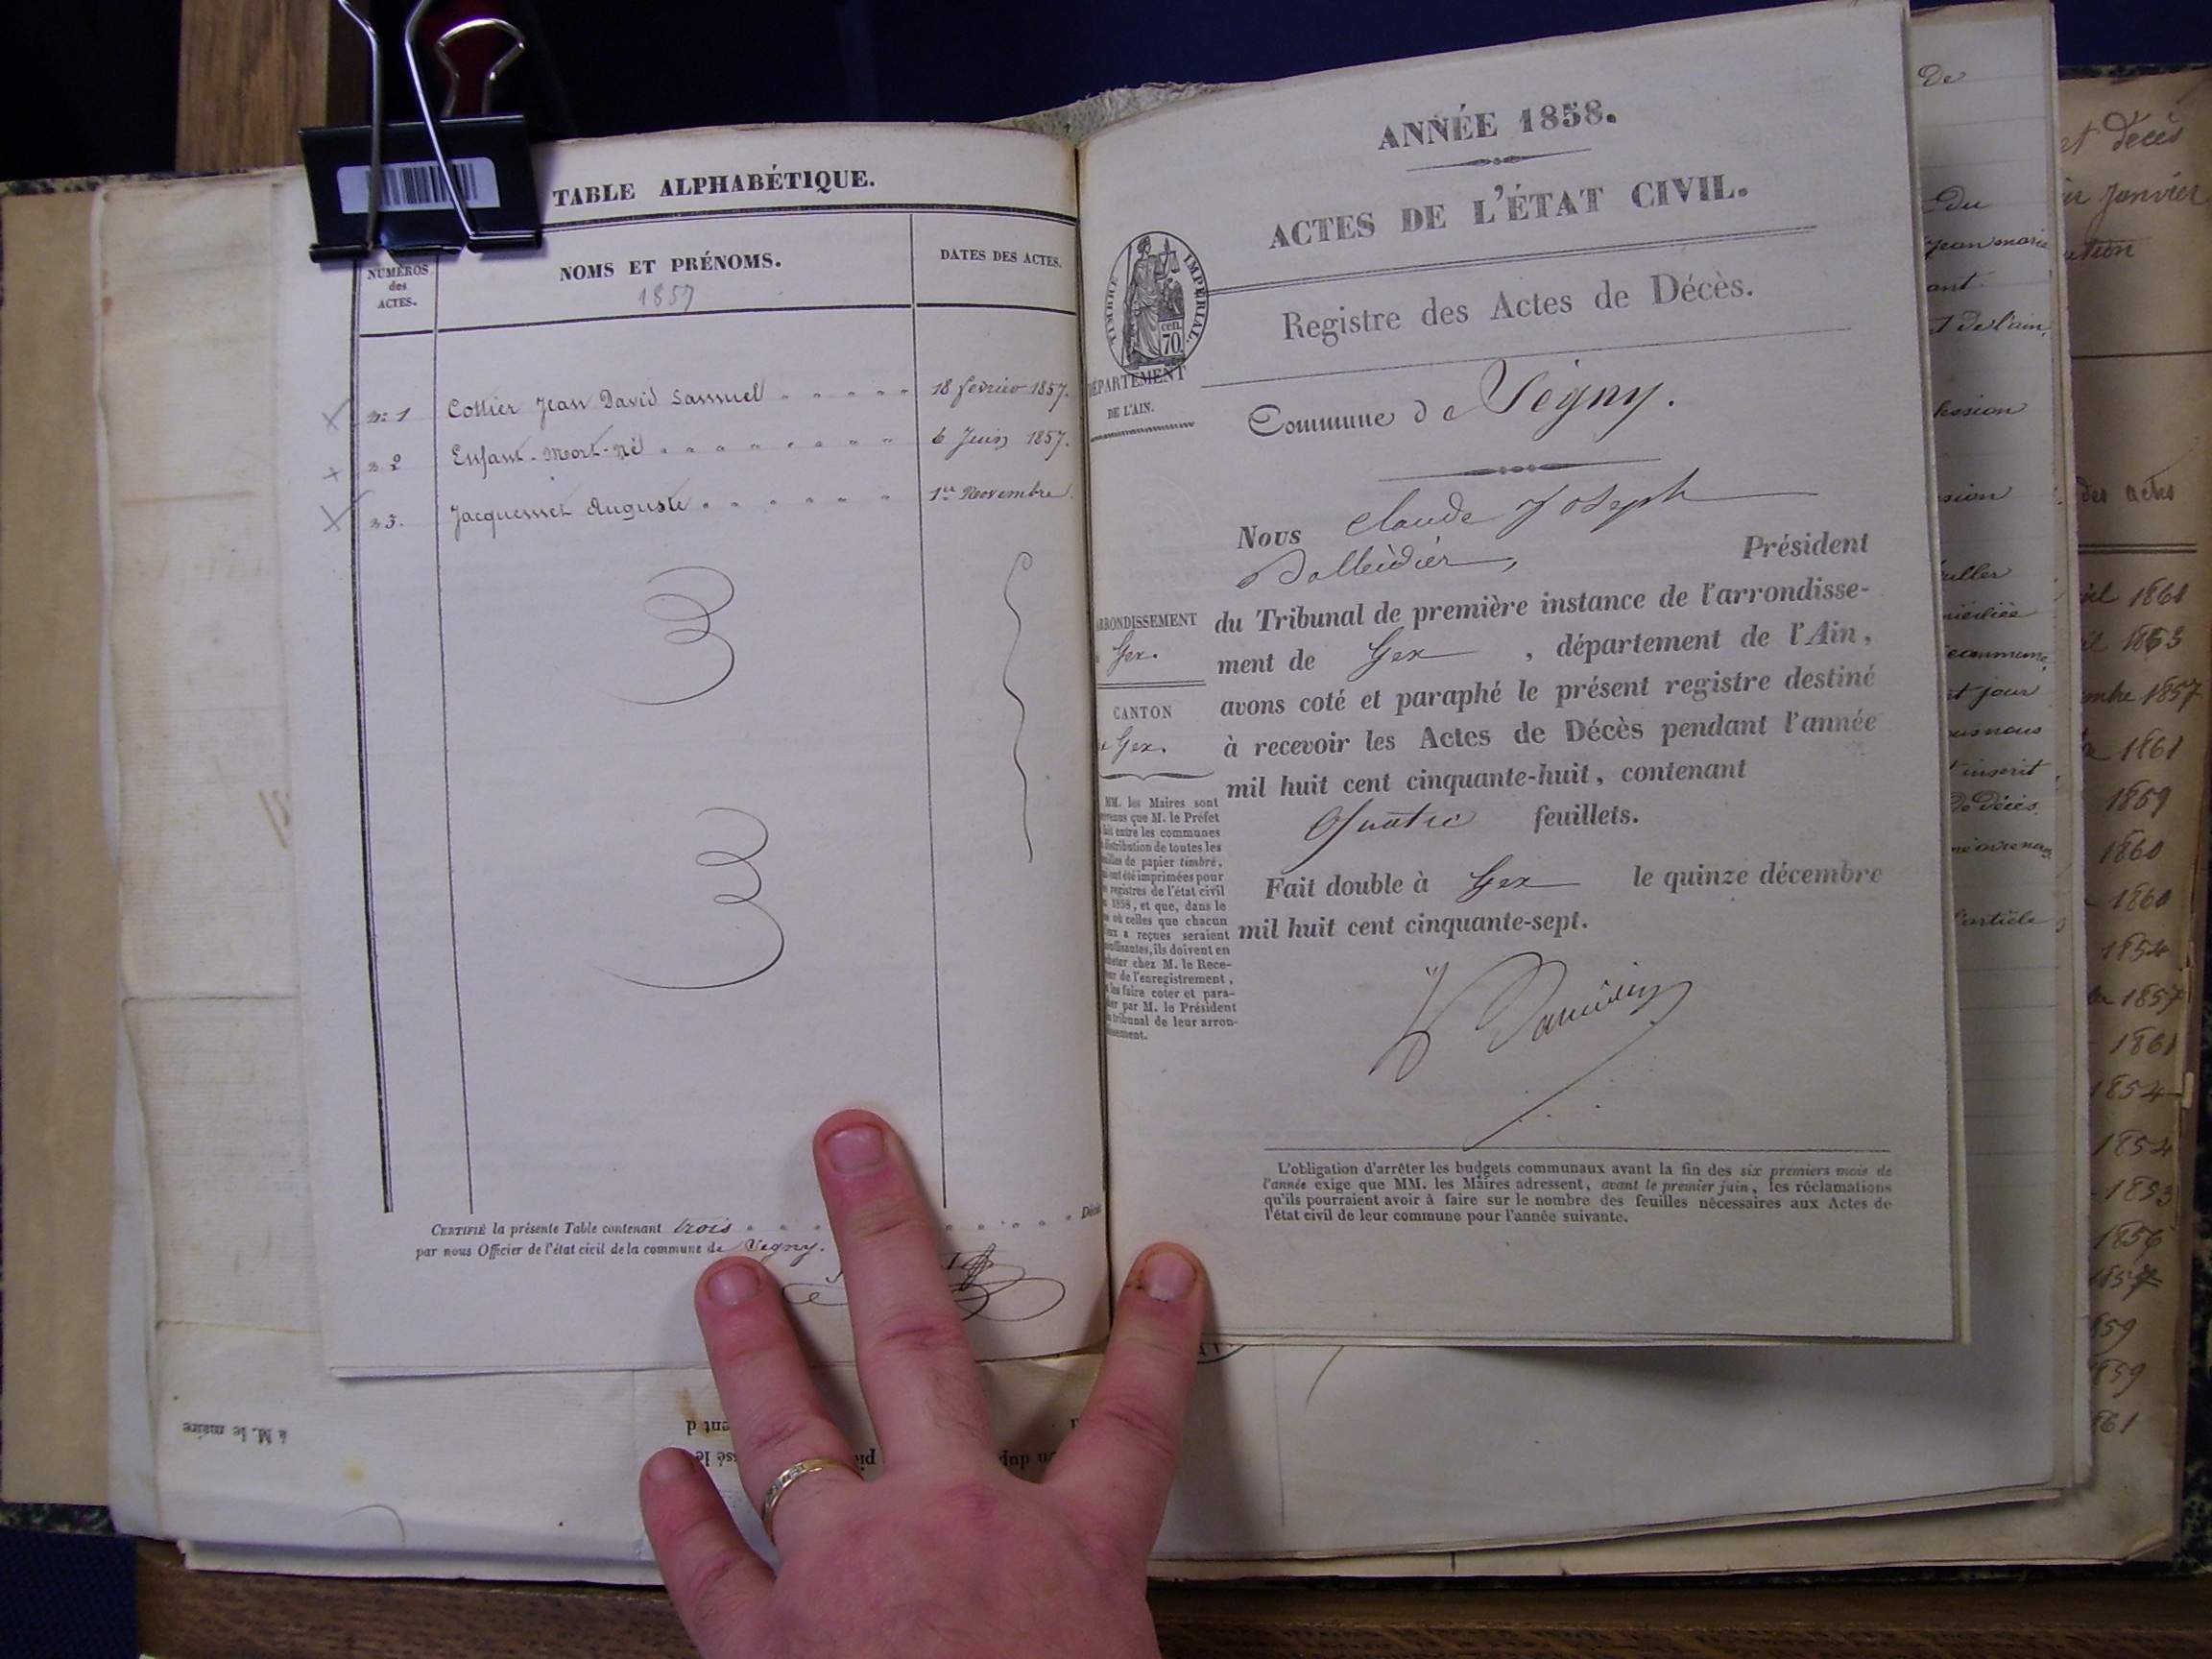 TABLE ALPHABÉTIQUE.
NUMÉROS
des
ACTES.
NOMS ET PRÉNOMS.
1857
DATES DES ACTES.
n: 1 Cottier Jean David Samuel 18 février 1857.
n 2 Enfant-Mort-Né 6 Juin 1857.
n 3. Auguste 1er Novembre.
3
3
CERTIFIÉ la présente Table contenant trois Décès
par nous Officier de l'état civil de la commune de Ségny.
ANNÉE 1858.
ACTES DE L'ÉTAT CIVIL.
TIMBRE IMPÉRIAL.
cen.
70
Registre des Actes de Décès.
DÉPARTEMENT
DE L'AIN.
Commune de Ségny.
Nous Claude Joseph
Président
ARRONDISSEMENT
Gex.
du Tribunal de première instance de l'arrondisse-
ment de Gex, département de l'Ain,
CANTON
Gex.
avons coté et paraphé le présent registre destiné
à recevoir les Actes de Décès pendant l'année
mil huit cent cinquante-huit, contenant
Quatre feuillets.
Fait double à Gex le quinze décembre
mil huit cent cinquante-sept.
MM. les Maires sont
que M. le Préfet
fait entre les communes
distribution de toutes les
de papier timbré,
ont été imprimées pour
registres de l'état civil
1858, et que, dans le
où celles que chacun
a reçues seraient
ils doivent en
chez M. le Rece-
de l'enregistrement,
les faire coter et para-
par M. le Président
tribunal de leur arron-
L'obligation d'arrêter les budgets communaux avant la fin des six premiers mois de
l'année exige que MM. les Maires adressent, avant le premier juin, les réclamations
qu'ils pourraient avoir à faire sur le nombre des feuilles nécessaires aux Actes de
l'état civil de leur commune pour l'année suivante.
De
du
Jean marie
de l'ain,
jour
inscrit
de décès
l'article
et décès
Janvier
des actes
1861
1853
1857
1861
1859
1860
1860
1854
1857
1861
1854
1854
1853
1856
1857
859
859
861
à M. le maire